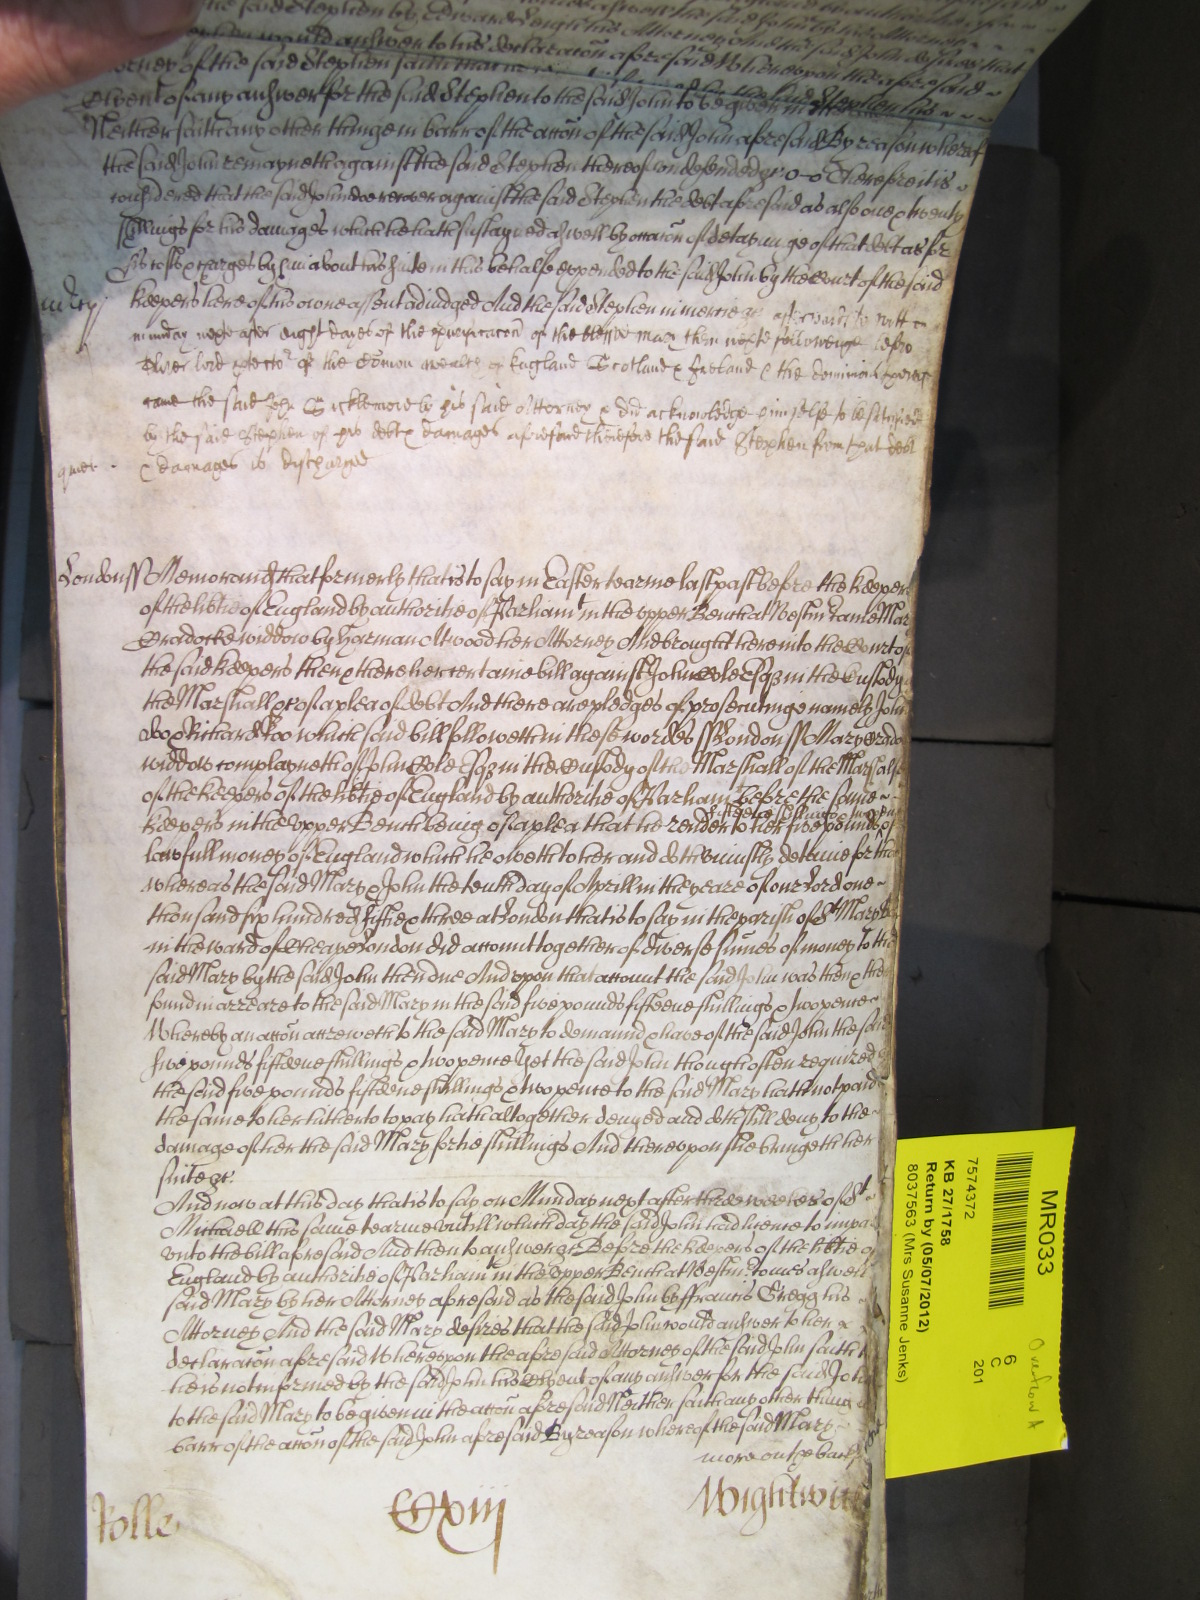 the said Stephen by Edward his Attorney And the said John desires that
would answer to his declaracon aforesaid Whereupon the aforesaid
Attorney of the said Stephen saith that
Clyent of any answer for the said Stephen to the said John to be given in
Neither saith any other thinge in barr of the accon of the said John aforesaid By reason whereof
the said John remayneth against the said Stephen thereof undefended &c Therefore it is
considered that the said John doe recover against the said Stephen the debt aforesaid as also one & twenty
shillings for his damages which he hath susteyned aswell by occacon of detayninge of that debt as for
his costs & charges by him about his suite in this behalfe expended to the said John by the Court of the said
mercy
keepers here of his owne assent adiudged And the said Stephen in mercie &c afterwards to witt
munday next after eight dayes of the purificacon of the blessed Mary then next followeinge before
Oliver lord protector of the Comon wealth of England Scotland & Ireland & the dominions
came the said John Sicklemore by his said Attorney & did acknowledge himselfe to be satisfied
by the said Stephen of his debt & damages aforesaid therefore the said Stephen from that debt
quiet
& damages is discharged
London ss Memorand that formerly that is to say in Easter tearme last past before the keepers
of the libtie of England by authoritie of Parliamt in the upper Bench at Westm came Mary
Cradocke widdow by Harman Atwood her Attorney And brought here into the Court of
the said keepers then & there her certaine bill against John Cole Esqz in the Custody of
the Marshall &c of a plea of debt And there are pledges of prosecutinge namely John
doo & Richard Roo which said bill followeth in these wordes ss London ss Mary Cradocke
widdow complayneth of John Cole Esqz in the Custody of the Marshall of the Marshalsey
of the keepers of the libtie of England by authoritie of Parliam before the same
fifteene shillings & two pence
keepers in the upper Bench being of a plea that he render to her five pounds of
lawfull money of England which he oweth to her and doth uniustly deteine for that
whereas the said Mary & John the tenth day of Aprill in the yeare of our Lord one
thousand six hundred fiftie & three at London that is to say in the parish of St Mary
in the ward of Cheape London did accompt together of diverse sumes of money to the
said Mary by the said John then due And upon that accompt the said John was then & there
found in arreare to the said Mary in the said five pounds fifteene shillings & two pence
Whereby an accon accreweth to the said Mary to demaund & have of the said John the said
five pounds fifteene shillings & two pence Yet the said John though often required
the said five pounds fifteene shillings & two pence to the said Mary hath not paid
the same to her hitherto to pay hath altogether denyed and doth still deny to the
damage of her the said Mary fortie shillings And thereupon she bringeth her
suite &c
And now at this day that is to say on Munday next after three weekes of St
Michaell this same tearme untill which day the said John had licence to imparle
unto the bill aforesaid And then to answer &c Before the keepers of the libtie of
England by authoritie of Parliamt in the upper Bench at Westm comes aswell the
said Mary by her Attorney aforesaid as the said John by ffrancis Gregg his
Attorney And the said Mary desires that the said John would answer to her
declaracon aforesaid Whereupon the aforesaid Attorney of the said John saith that
he is not informed by the said John his Clyent of any answer for the said John
to the said Mary to be given in the accon aforesaid Neither saith any other thinge in
barr of the accon of the said John aforesaid By reason whereof the said Mary
more on the back
Rolle CCxiij Wightwick
MR033
7574372
KB 27/1758
Return by (05/07/2012)
8037563 (Mrs Susanne Jenks)
6
C
201
Overflow A